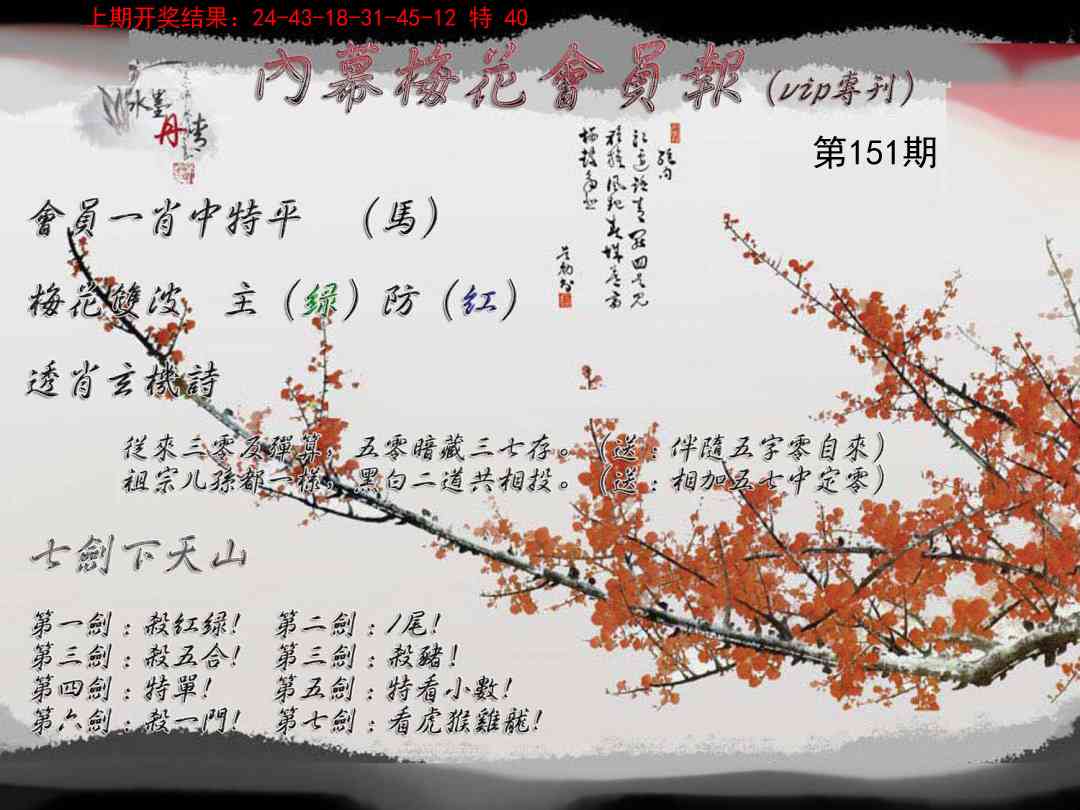 上期开奖结果：24-43-18-31-45-12 特 40
內幕梅花會員報（vip專刊）
水墨
丹青
第151期
會員一肖中特平　（馬）
梅花雙波　主（綠）防（紅）
透肖玄機詩
從來三零反彈算，五零暗藏三七存。（送：伴隨五字零自來）
祖宗儿孫都一樣，黑白二道共相投。（送：相加五七中定零）
七劍下天山
第一劍：殺紅綠！　第二劍：1尾！
第三劍：殺五合！　第三劍：殺豬！
第四劍：特單！　第五劍：特看小數！
第六劍：殺一門！　第七劍：看虎猴雞龍！